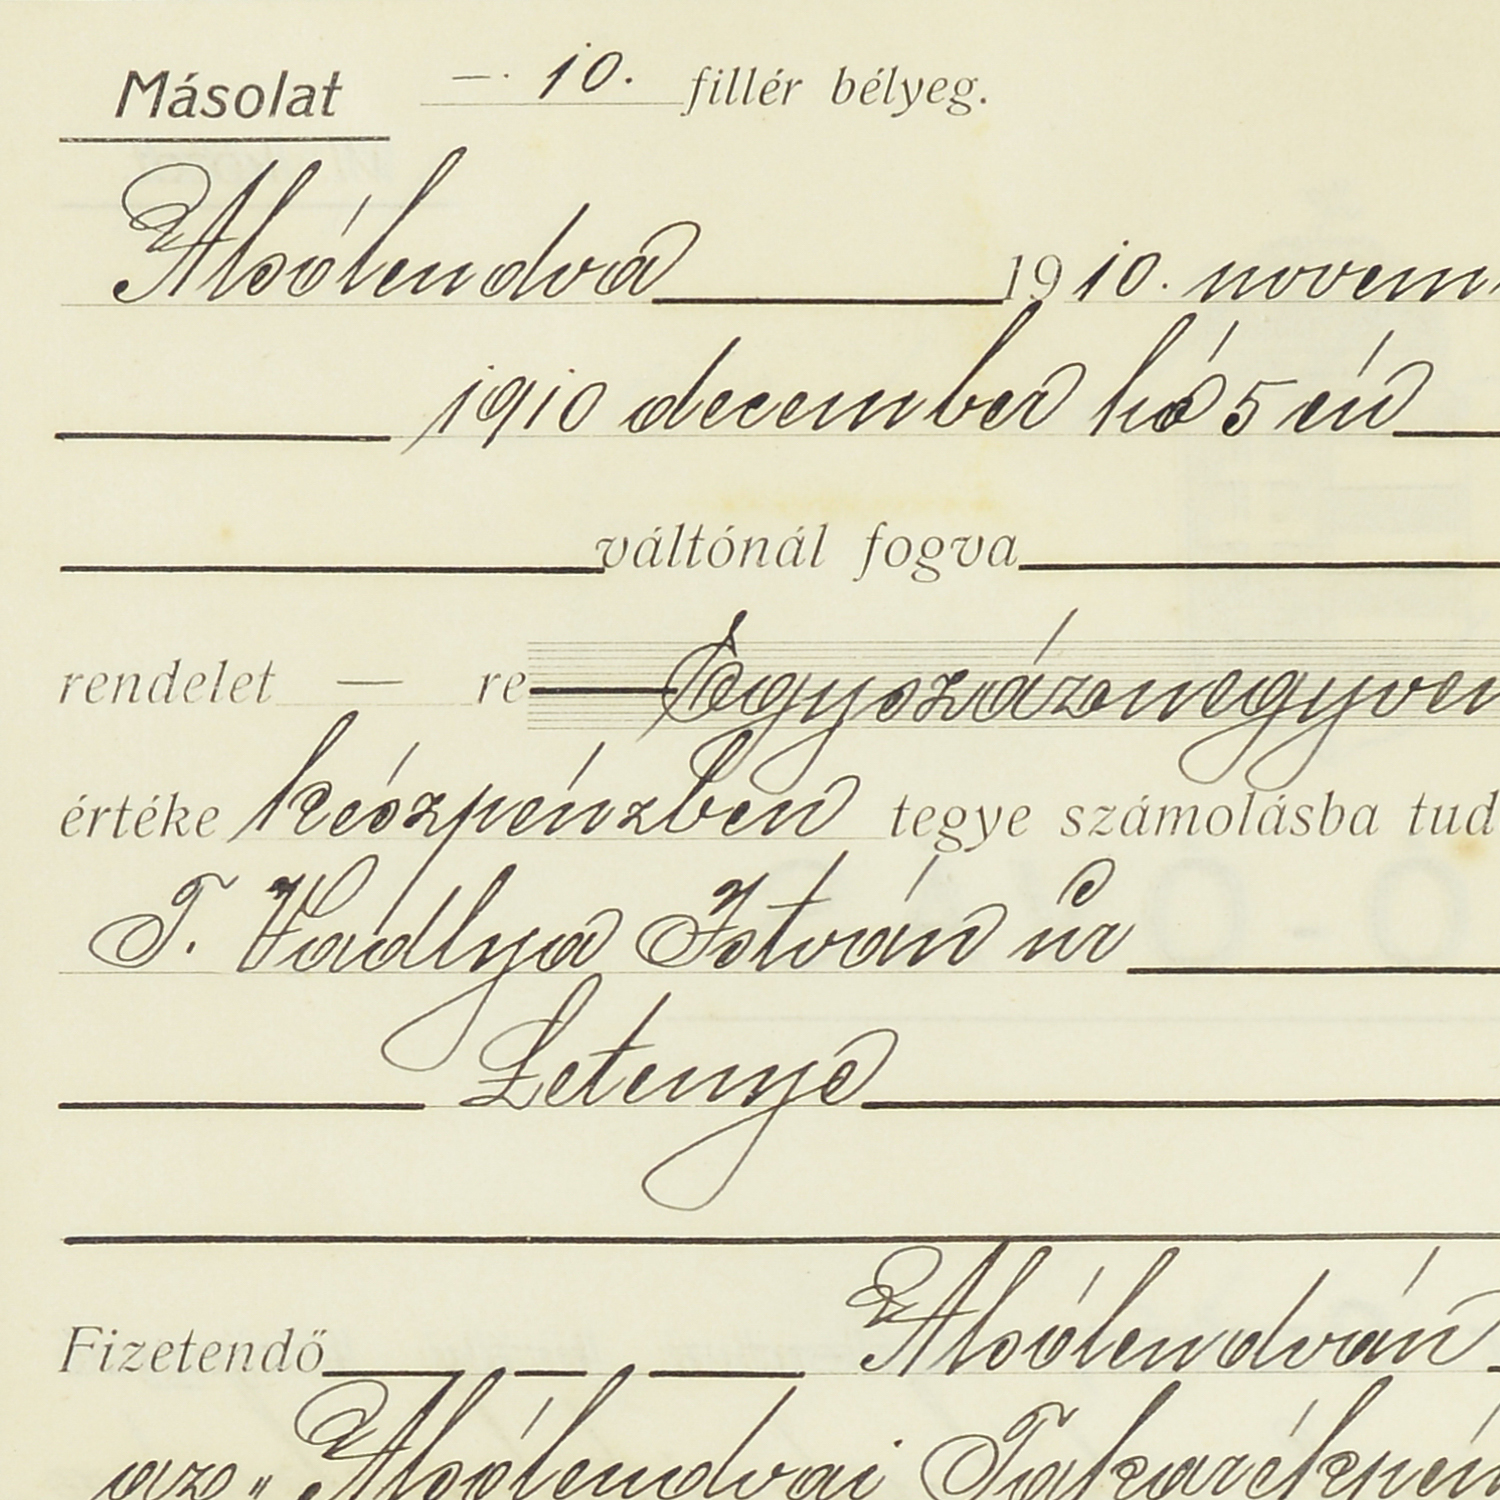 Másolat —. 10. fillér bélyeg.
Alsólendva 1910. novem
1910 december hó 5 én
váltónál fogva
rendelet — re Egyszáznegyven
értéke készpénzben tegye számolásba tud
T. Vadlya István úr
Letenye
Fizetendő Alsólendván
az „Alsólendvai Takarékpén